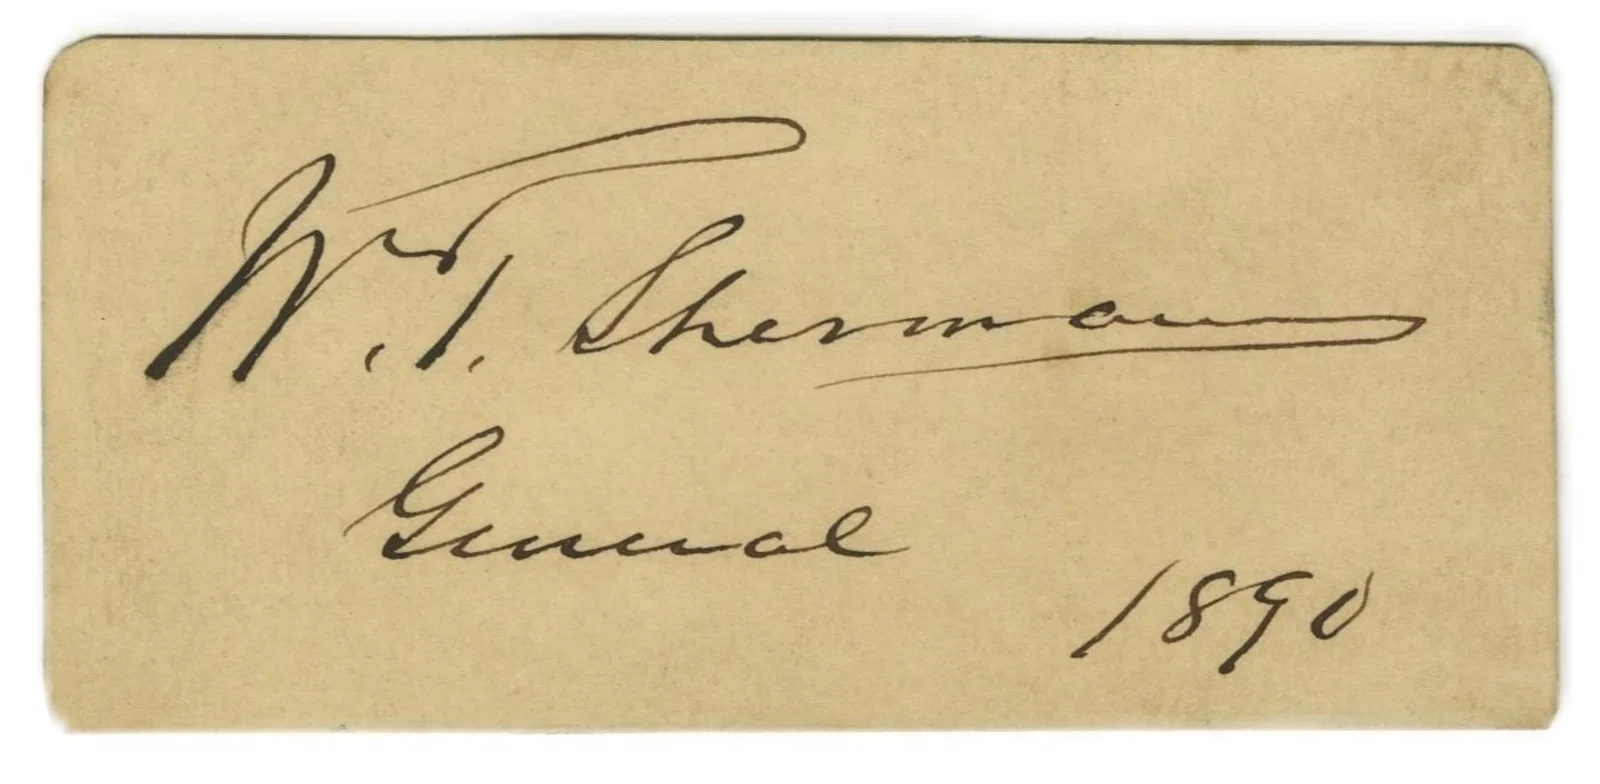 W. T. Sherman
General
1890